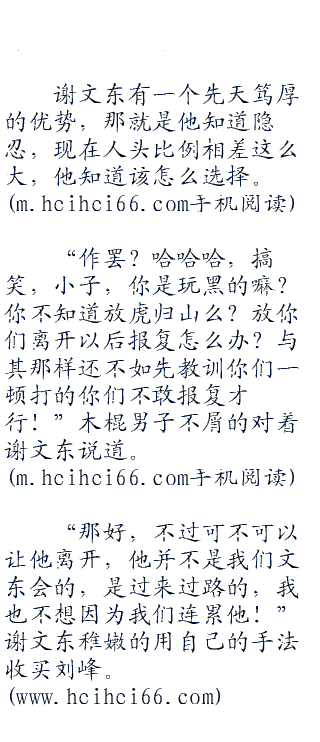 谢文东有一个先天笃厚
的优势，那就是他知道隐
忍，现在人头比例相差这么
大，他知道该怎么选择。
(m.hcihci66.com手机阅读)
“作罢？哈哈哈，搞
笑，小子，你是玩黑的嘛？
你不知道放虎归山么？放你
们离开以后报复怎么办？与
其那样还不如先教训你们一
顿打的你们不敢报复才
行！”木棍男子不屑的对着
谢文东说道。
(m.hcihci66.com手机阅读)
“那好，不过可不可以
让他离开，他并不是我们文
东会的，是过来过路的，我
也不想因为我们连累他！”
谢文东稚嫩的用自己的手法
收买刘峰。
(www.hcihci66.com)